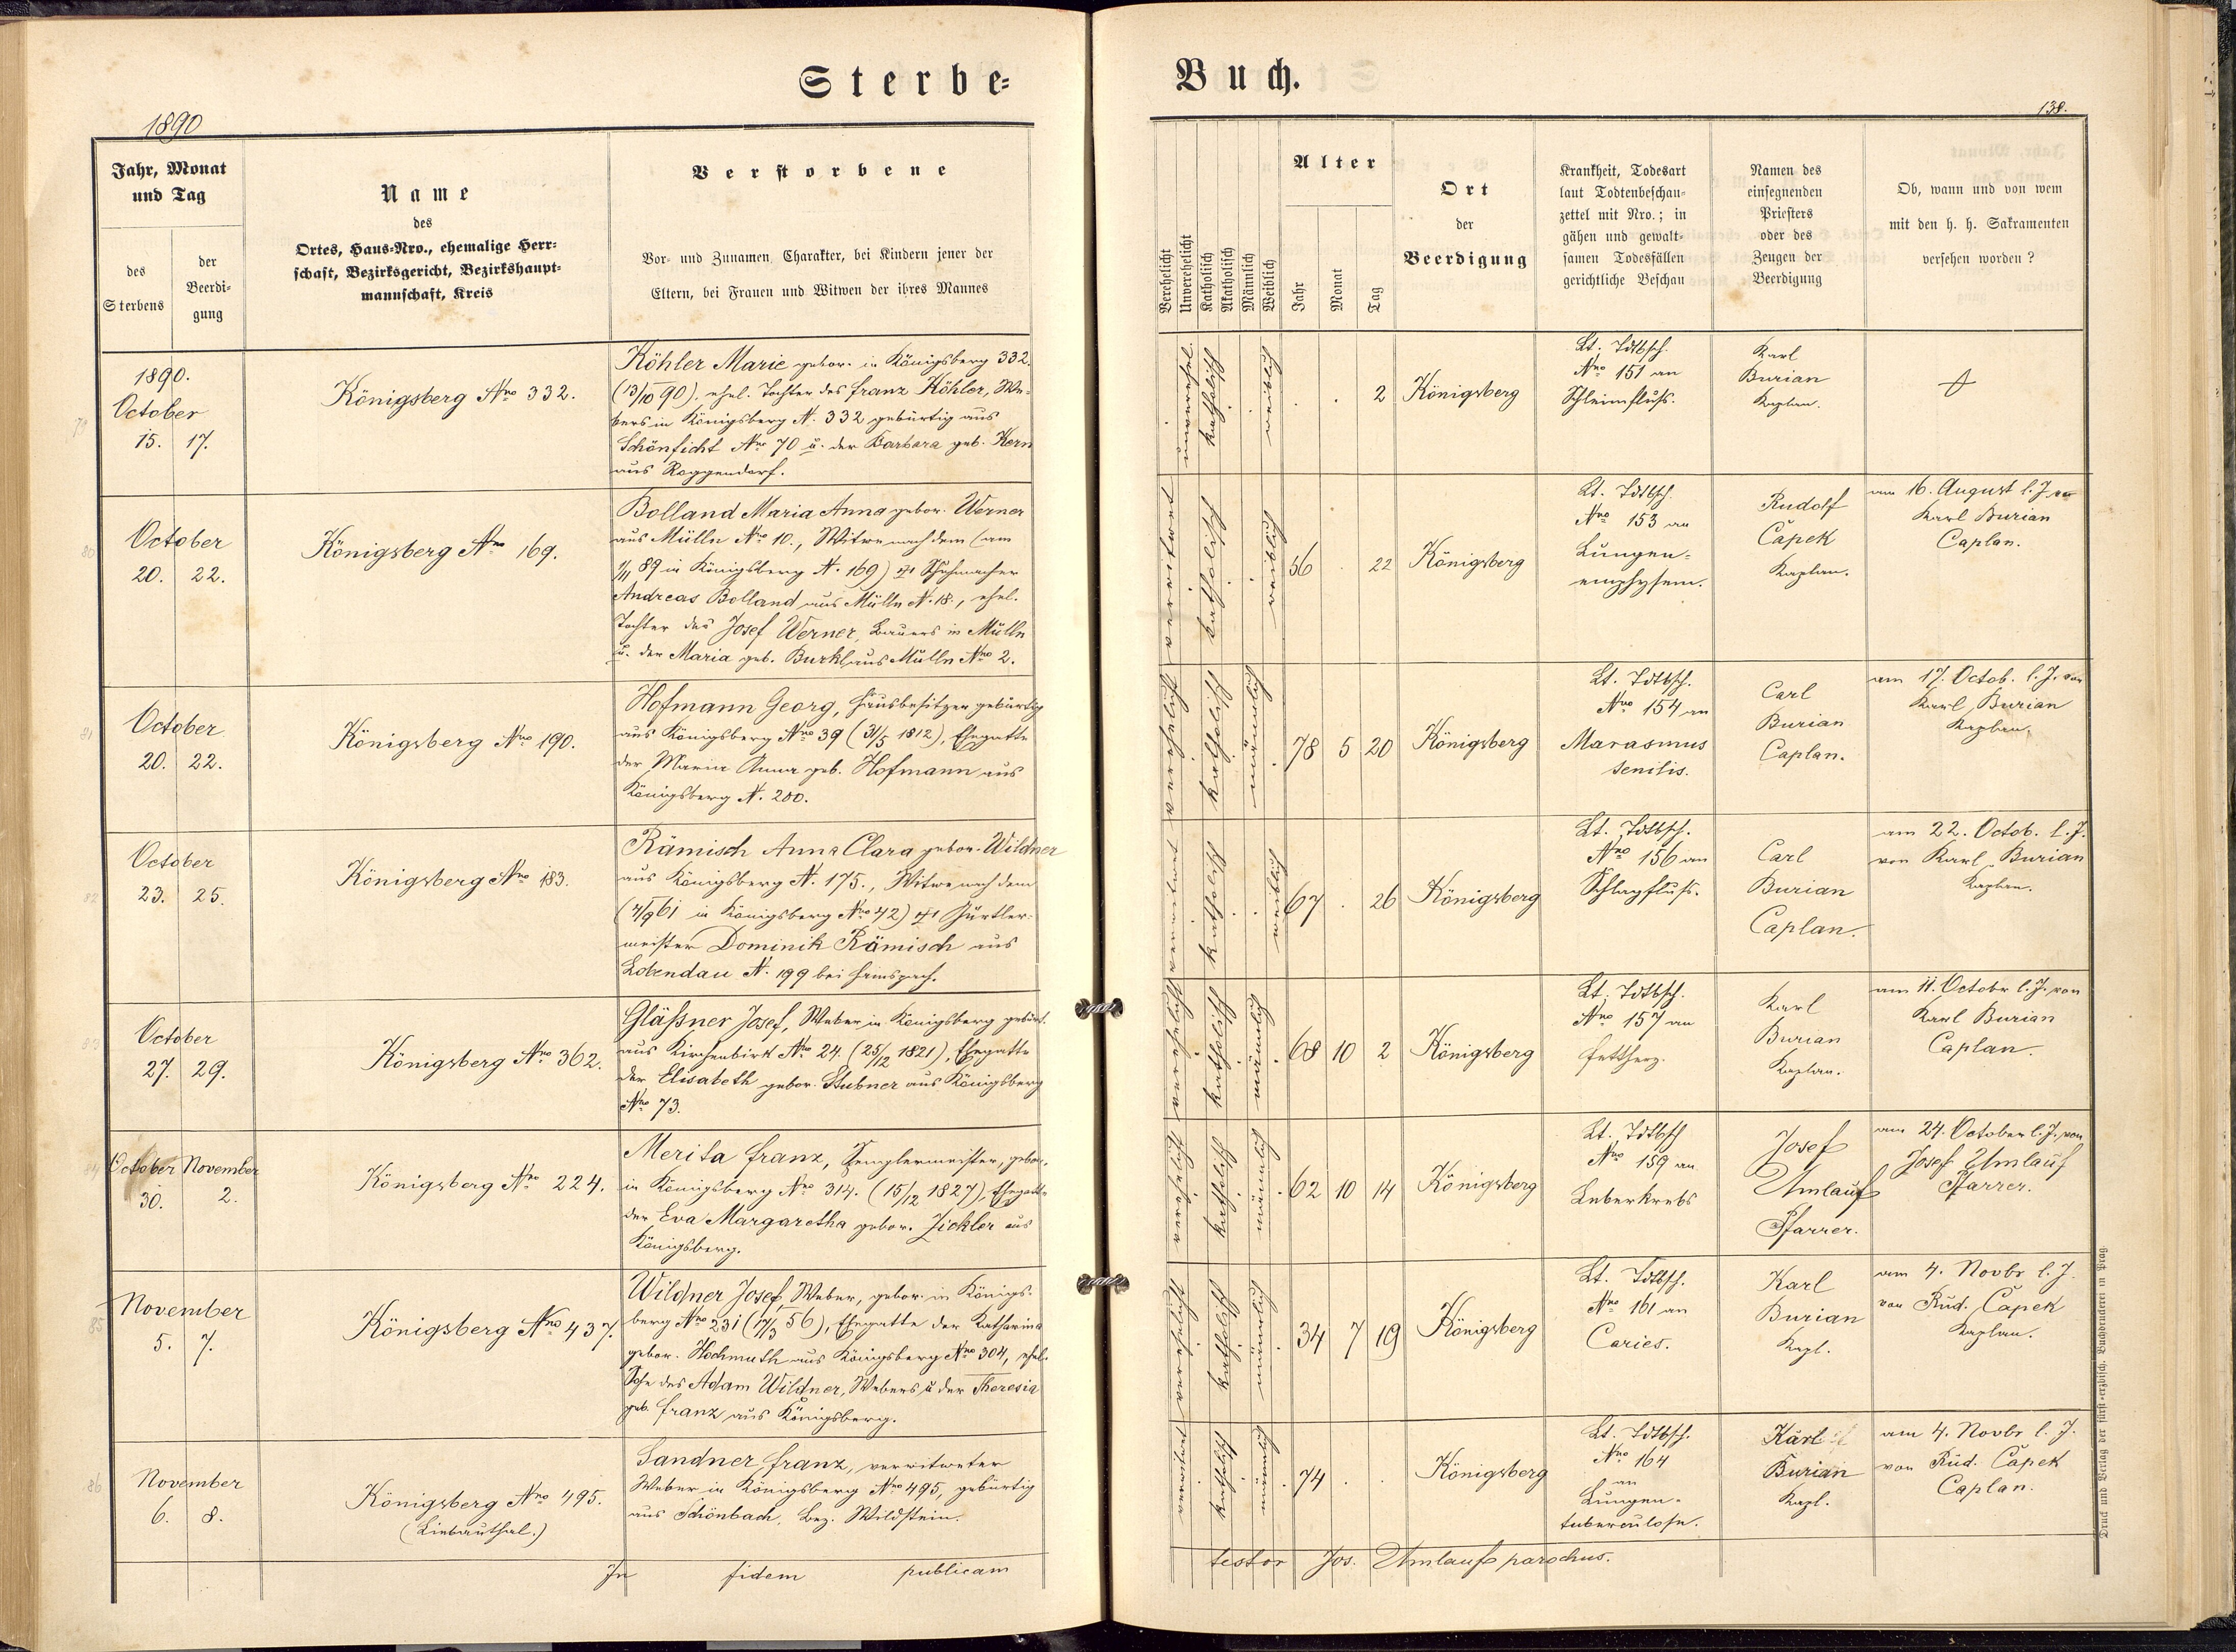 Sterbe-
Buch.
1890
138.
Jahr, Monat
und Tag
des
Sterbens
der
Beerdi-
gung
Name
des
Ortes, Haus-Nro., ehemalige Herr-
schaft, Bezirksgericht, Bezirkshaupt-
mannschaft, Kreis
Verstorbene
Vor- und Zunamen, Charakter, bei Kindern jener der
Eltern, bei Frauen und Witwen der ihres Mannes
Verehelicht
Unverehelicht
Katholisch
Akatholisch
Männlich
Weiblich
Alter
Jahr
Monat
Tag
Ort
der
Beerdigung
Krankheit, Todesart
laut Todtenbeschau-
zettel mit Nro.; in
gähen und gewalt-
samen Todesfällen
gerichtliche Beschau
Namen des
einsegnenden
Priesters
oder des
Zeugen der
Beerdigung
Ob, wann und von wem
mit den h. h. Sakramenten
versehen worden?
79
1890.
October
15. 17.
Königsberg Nro 332.
Köhler Marie gebor. in Königsberg 332.
(13/10 90). ehel. Tochter des Franz Köhler, We-
bers in Königsberg N. 332 gebürtig aus
Schönficht Nro 70 u. der Barbara geb. Kern
aus Roggendorf.
unverehel.
katholisch
weiblich
. . 2
Königsberg
Lt. Tdtbsch.
Nro 151 an
Schleimfluß.
Karl
Burian
Kaplan.
80
October
20. 22.
Königsberg Nro 169.
Bolland Maria Anna gebor. Werner
aus Mülln Nro 10., Witwe nach dem (am
1/11 89 in Königsberg N. 169) Schuhmacher
Andreas Bolland aus Mülln N. 18., ehel.
Tochter des Josef Werner, Bauers in Mülln
u. der Maria geb. Burkl aus Mülln Nro 2.
verwitwet
katholisch
weiblich
56 . 22
Königsberg
Lt. Tdtbsch.
Nro 153 an
Lungen-
emphysem.
Rudolf
Čapek
Kaplan.
am 16. August l. J. von
Karl Burian
Caplan.
81
October
20. 22.
Königsberg Nro 190.
Hofmann Georg, Hausbesitzer gebürtig
aus Königsberg Nro 39 (31/5 1812), Ehegatte
der Maria Anna geb. Hofmann aus
Königsberg N. 200.
verehelicht
katholisch
männlich
78 5 20
Königsberg
Lt. Tdtbsch.
Nro 154 an
Marasmus
senilis.
Carl
Burian
Caplan.
am 17. Octob. l. J. von
Karl Burian
Kaplan.
82
October
23. 25.
Königsberg Nro 183.
Rämisch Anna Clara gebor. Wildner
aus Königsberg N. 175., Witwe nach dem
(4/9 61 in Königsberg Nro 42) Gürtler-
meister Dominik Rämisch aus
Lobendau N. 199 bei Hainspach.
verwitwet
katholisch
weiblich
67 . 26
Königsberg
Lt. Tdtbsch.
Nro 156 an
Schlagfluß.
Carl
Burian
Caplan.
am 22. Octob. l. J.
von Karl Burian
Kaplan.
83
October
27. 29.
Königsberg Nro 362.
Gläßner Josef, Weber in Königsberg gebürt.
aus Kirchenbirk Nro 24. (25/12 1821), Ehegatte
der Elisabeth gebor. Stubner aus Königsberg
Nro 73.
verehelicht
katholisch
männlich
68 10 2
Königsberg
Lt. Tdtbsch.
Nro 157 an
Fettherz.
Karl
Burian
Kaplan.
am 11. Octobr l. J. von
Karl Burian
Caplan.
84
October November
30. 2.
Königsberg Nro 224.
Merita Franz, Renglermeister, gebor.
in Königsberg Nro 314. (15/12 1827), Ehegatte
der Eva Margaretha gebor. Zickler aus
Königsberg.
verehelicht
katholisch
männlich
62 10 14
Königsberg
Lt. Tdtbsch
Nro 159 an
Leberkrebs
Josef
Umlauf
Pfarrer.
am 24. October l. J. von
Josef Umlauf
Pfarrer.
85
November
5. 7.
Königsberg Nro 437.
Wildner Josef, Weber, gebor. in Königs-
berg Nro 231 (17/3 56), Ehegatte der Katharina
gebor. Hochmuth aus Königsberg Nro 304, ehel.
Sohn des Adam Wildner, Webers u der Theresia
geb. Franz aus Königsberg.
verehelicht
katholisch
männlich
34 7 19
Königsberg
Lt. Tdtbsch.
Nro 161 an
Caries.
Karl
Burian
Kapl.
am 4. Novbr l. J.
von Rud. Čapek
Kaplan.
86
November
6. 8.
Königsberg Nro 495.
(Liebauthal.)
Sandner Franz, verwitweter
Weber in Königsberg Nro 495, gebürtig
aus Schönbach, Bez. Wildstein.
verwitwet
katholisch
männlich
74 . .
Königsberg
Lt. Tdtbsch.
Nro 164
an
Lungen-
tuberculose.
Karl
Burian
Kapl.
am 4. Novbr l. J.
von Rud. Čapek
Caplan.
In fidem publicam
testor Jos. Umlauf parochus.
Druck und Verlag der fürst-erzbisch. Buchdruckerei in Prag.